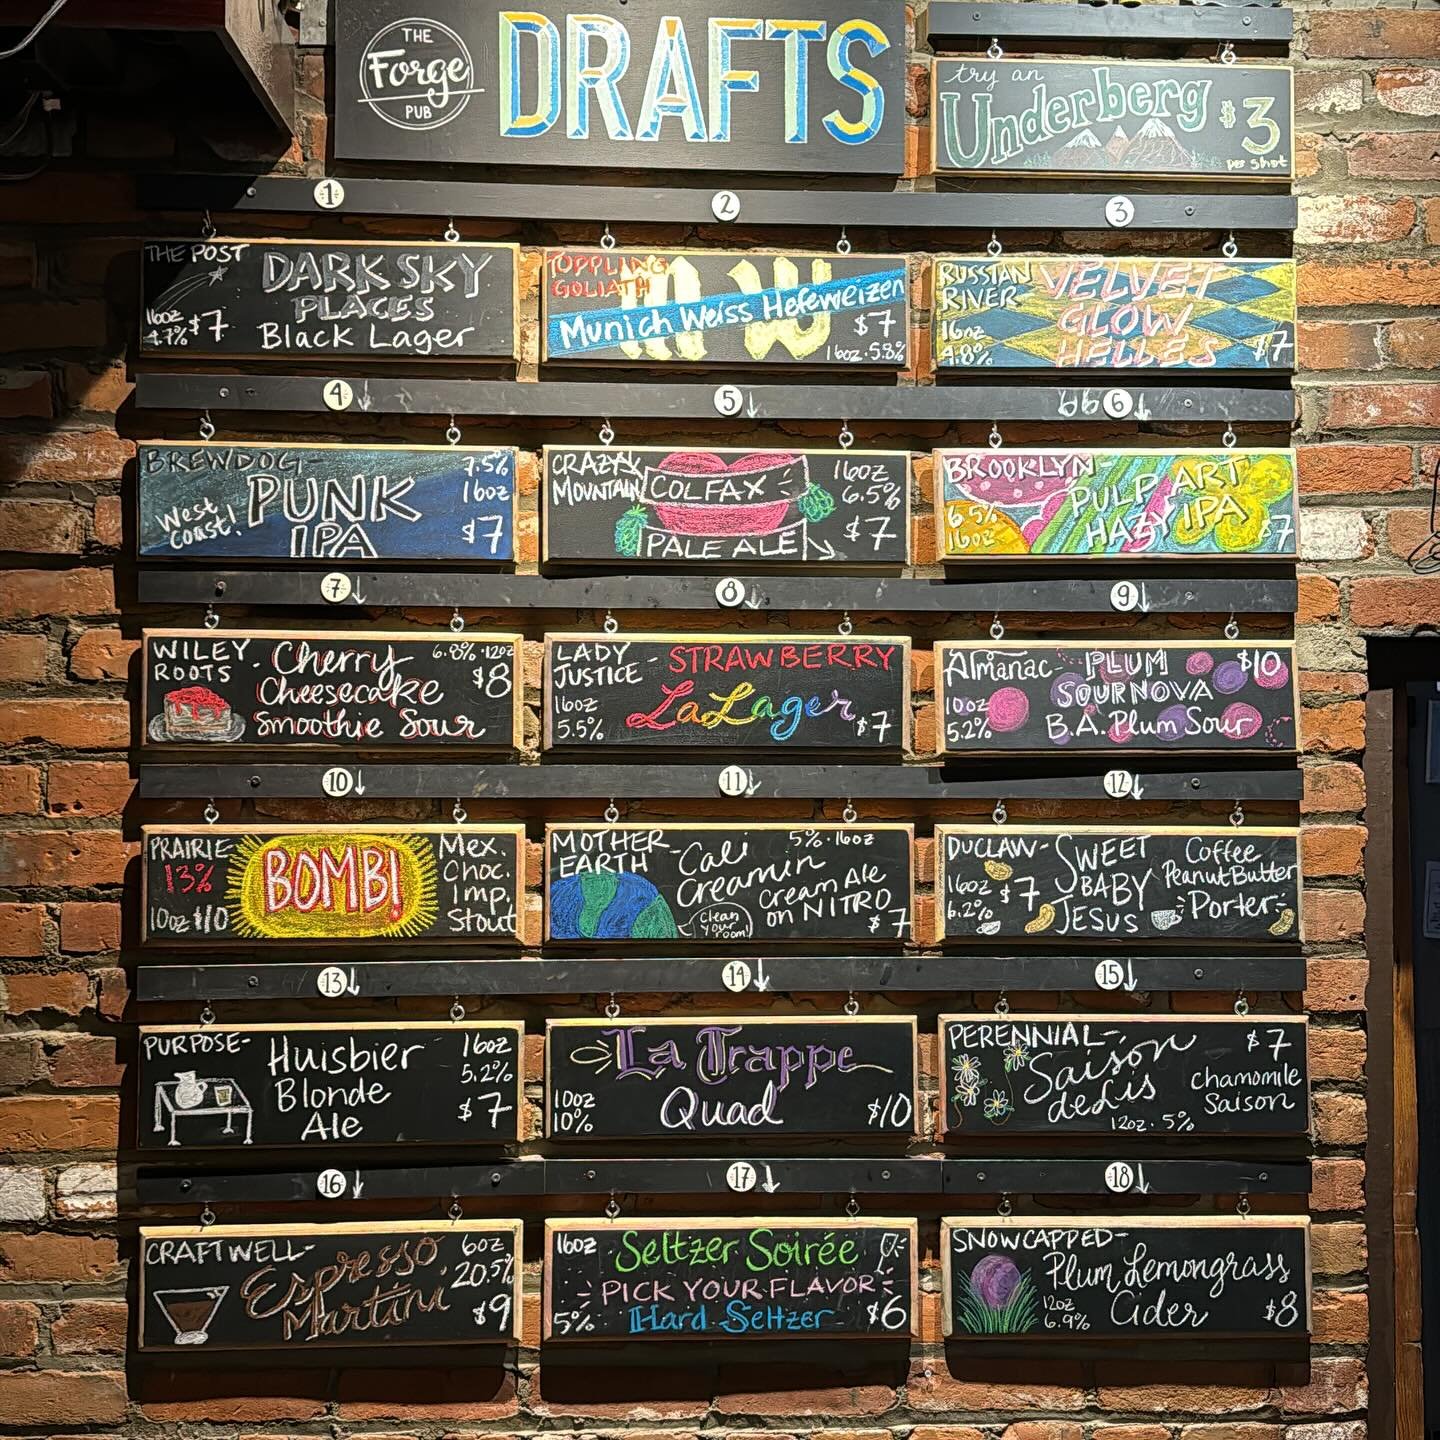 THE
Forge
PUB
DRAFTS
try an
Underberg
$3
per shot
1
THE POST
DARK SKY
PLACES
Black Lager
16oz
4.7% $7
2
TOPPLING
GOLIATH
MW
Munich Weiss Hefeweizen
$7
16oz · 5.8%
3
RUSSIAN
RIVER
VELVET
GLOW
HELLES
16oz
4.8%
$7
4↓
BREWDOG-
PUNK
IPA
West
Coast!
7.5%
16oz
$7
5↓
CRAZY
MOUNTAIN
COLFAX
PALE ALE
16oz
6.5%
$7
66 6↓
BROOKLYN-
PULP ART
HAZY IPA
6.5%
16oz
$7
7↓
WILEY
ROOTS
Cherry
Cheesecake
Smoothie Sour
6.8% · 12oz
$8
8↓
LADY
JUSTICE
- STRAWBERRY
LaLager
16oz
5.5%
$7
9↓
Almanac
- PLUM
SOURNOVA
B.A. Plum Sour
10oz
5.2%
$10
10↓
PRAIRIE-
13%
10oz $10
BOMB!
Mex.
Choc.
Imp.
Stout
11↓
MOTHER
EARTH
- Cali
Creamin
5% · 16oz
Cream Ale
on NITRO
$7
clean
your
room!
12↓
DUCLAW-
SWEET
BABY
JESUS
16oz
6.2%
$7
Coffee
Peanut Butter
Porter
13↓
PURPOSE-
Huisbier
Blonde
Ale
16oz
5.2%
$7
14↓
La Trappe
Quad
10oz
10%
$10
15↓
PERENNIAL-
Saisón
de Lis
12oz · 5%
$7
Chamomile
Saison
16↓
CRAFTWELL-
Espresso
Martini
6oz
20.5%
$9
17↓
16oz
Seltzer Soirée
- PICK YOUR FLAVOR -
5% · Hard Seltzer
$6
18↓
SNOWCAPPED-
Plum Lemongrass
Cider
12oz
6.9%
$8